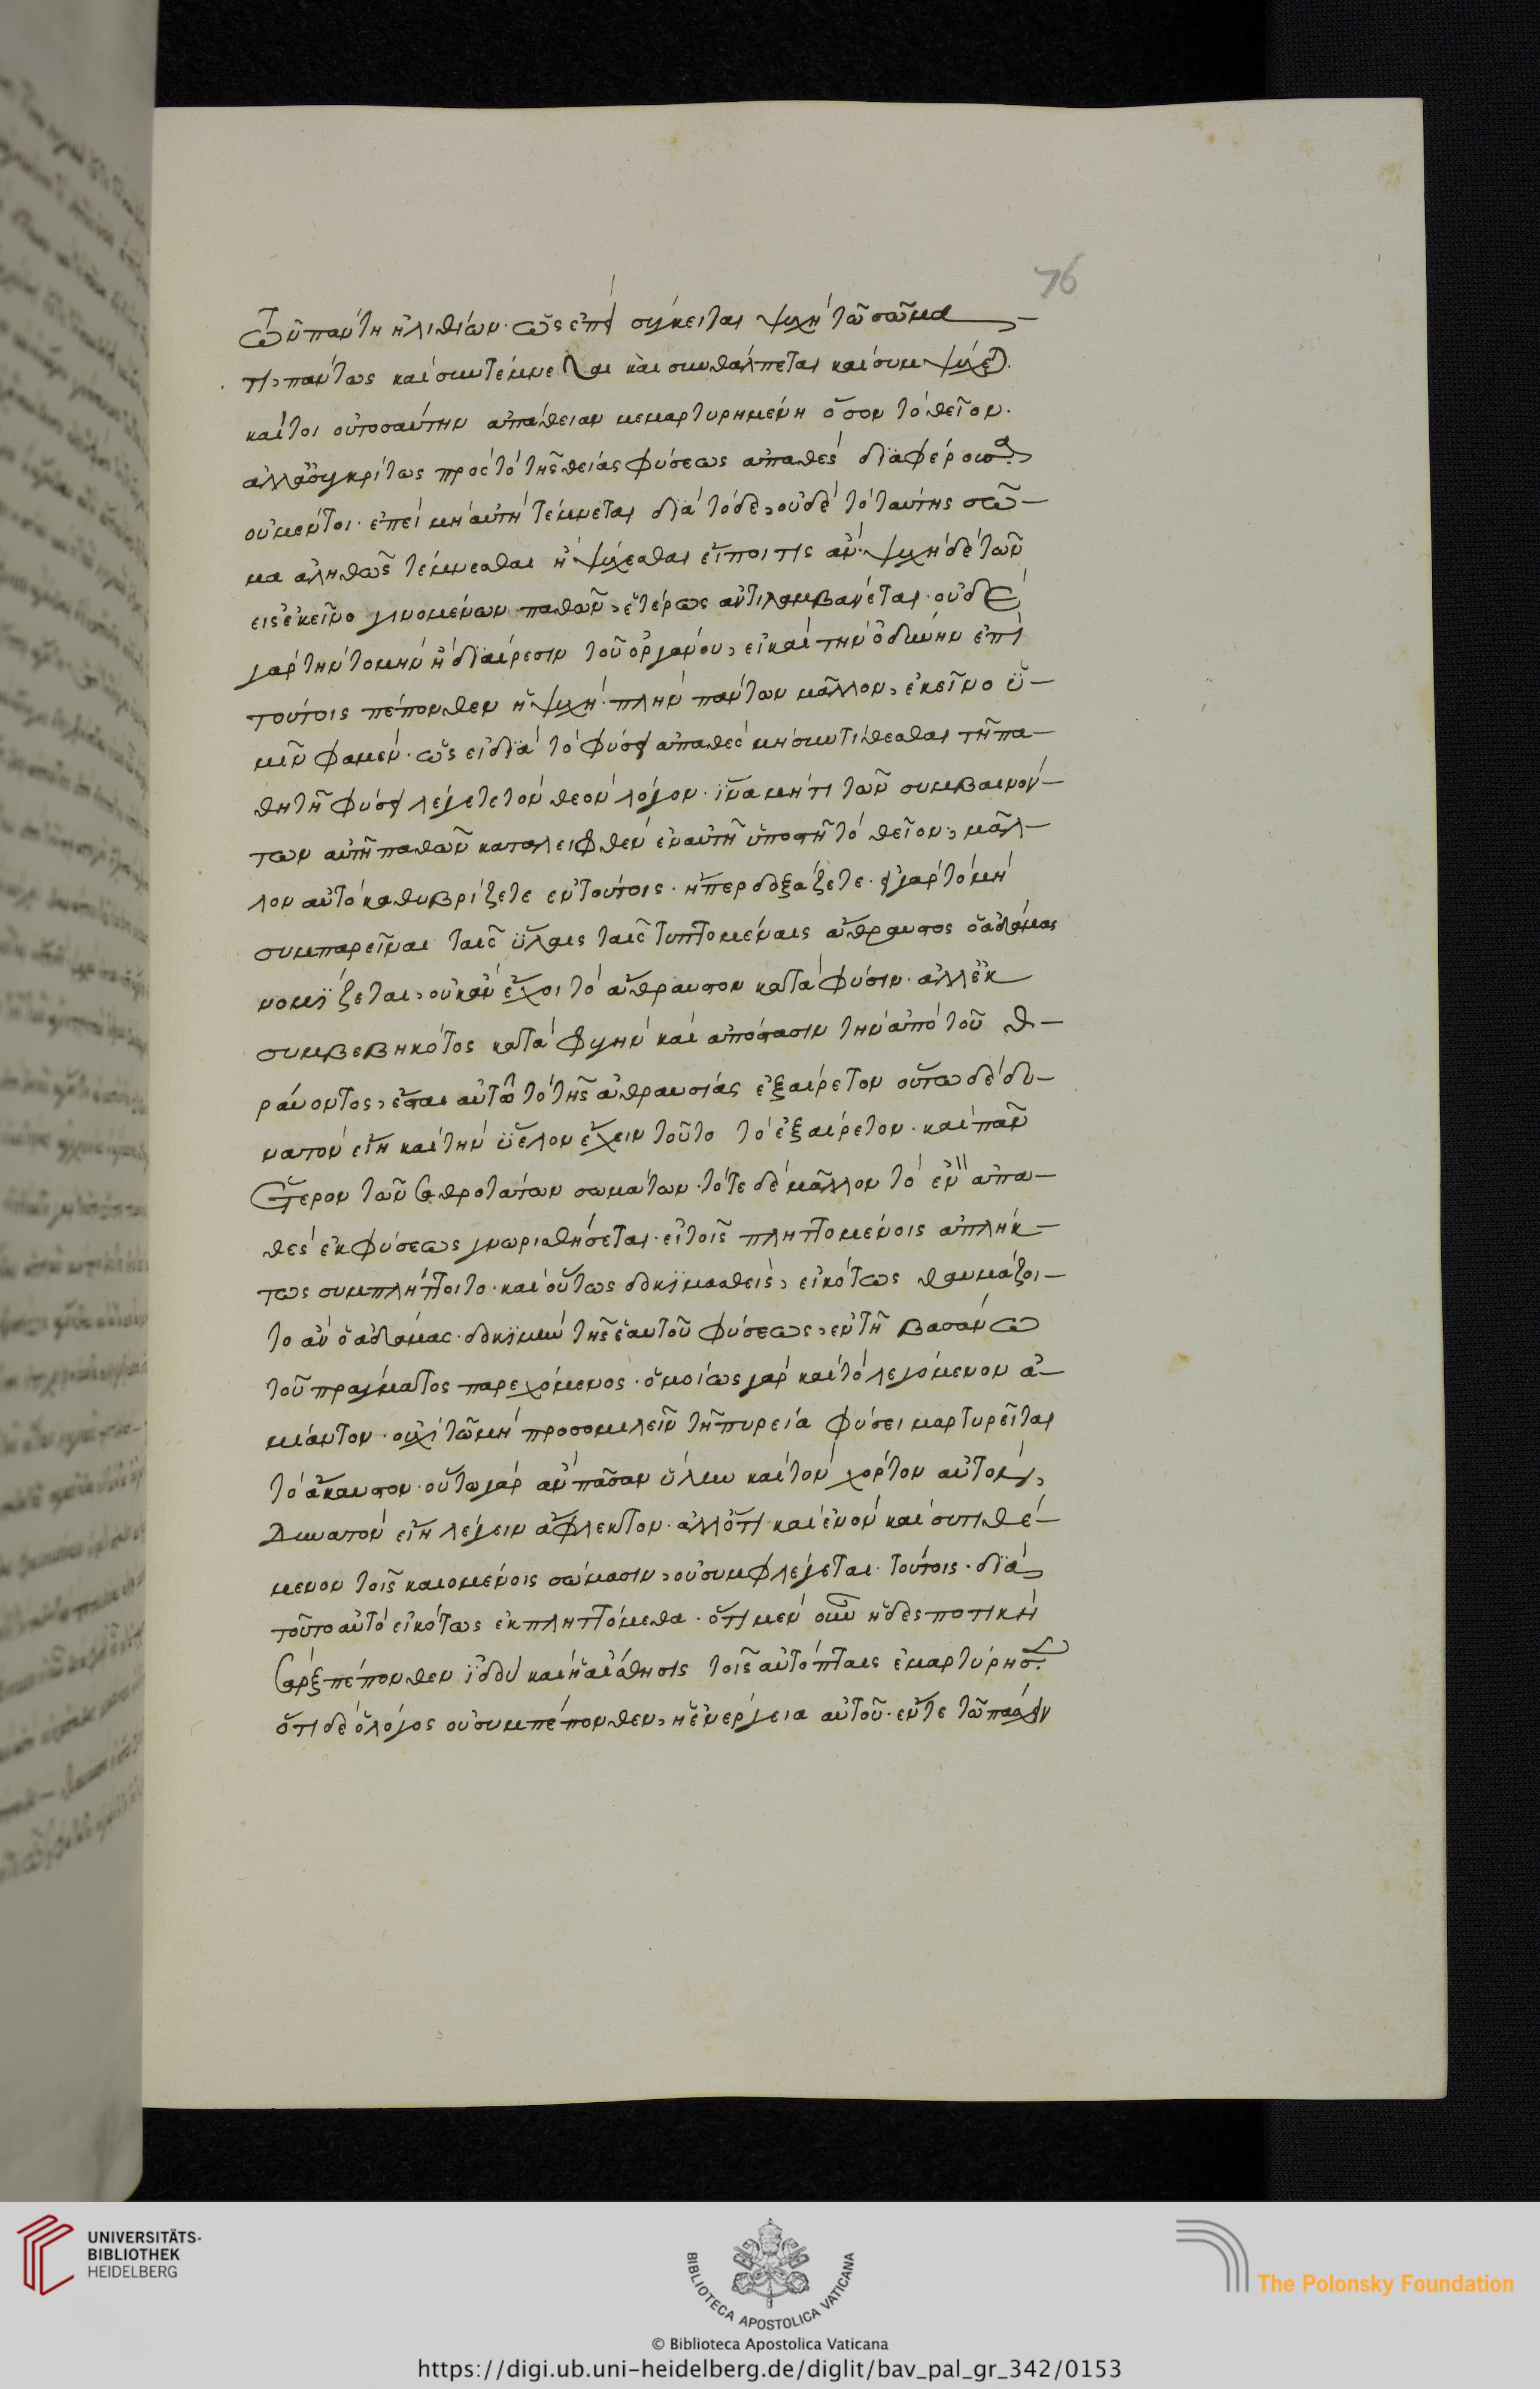 76
τῶν πάντη ἠλιθίων· ὡς ἐπεὶ σύγκειται ψυχὴ τῶ σώμα-
τι, πάντως καὶ συντέμνεται καὶ συνθάλπεται καὶ συμψύχεται.
καίτοι οὐ τοσαύτην ἀπάθειαν μεμαρτυρημένη ὅσον τὸ θεῖον.
ἀλλ' ἀσυγκρίτως πρὸς τὸ τῆς θείας φύσεως ἀπαθὲς διαφέρουσα.
οὐ μέντοι· ἐπεὶ μὴ αὐτὴ τέμνεται διὰ τόδε, οὐδὲ τὸ ταύτης σῶ-
μα ἀληθῶς τέμνεσθαι ἢ ψύχεσθαι εἴποι τις ἄν· ψυχὴ δὲ τῶν
εἰς ἐκεῖνο γινομένων παθῶν, ἑτέρως ἀντιλαμβάνεται· οὐδὲ
γὰρ τὴν τομὴν ἢ διαίρεσιν τοῦ ὀργάνου, εἰ καὶ τὴν ὀδύνην ἐπὶ
τούτοις πέπονθεν ἡ ψυχή· πλὴν πάντων μᾶλλον, ἐκεῖνο ὑ-
μῖν φαμέν· ὡς εἰ διὰ τὸ φύσει ἀπαθὲς μὴ συντίθεσθαι τῆ πα-
θητῆ φύσει λέγετε τὸν θεὸν λόγον· ἵνα μή τι τῶν συμβαινόν-
των αὐτῆ παθῶν καταλειφθὲν ἐν αὐτῆ ὑποστῆ τὸ θεῖον, μᾶλ-
λον αὐτὸ καθυβρίζετε ἐν τούτοις· ἤπερ δοξάζετε· εἰ γὰρ τὸ μὴ
συμπαρεῖναι ταῖς ὕλαις ταῖς τυπτομέναις ἄθραυστος ὁ ἀδάμας
νομίζεται, οὐκ ἂν ἔχοι τὸ ἄθραυστον κατὰ φύσιν· ἀλλ' ἐκ
συμβεβηκότος κατὰ φυγὴν καὶ ἀπόστασιν τὴν ἀπὸ τοῦ θ-
ραύοντος, ἔσται αὐτῶ τὸ τῆς ἀθραυσίας ἐξαίρετον οὕτω δὲ δυ-
νατὸν εἴη καὶ τὴν ὕελον ἔχειν τοῦτο τὸ ἐξαίρετον· καὶ πᾶν
ἕτερον τῶν σαθροτάτων σωμάτων· τότε δὲ μᾶλλον τὸ ἐν ἀπα-
θὲς ἐκ φύσεως γνωρισθήσεται· εἰ τοῖς πληττομένοις ἀπλήκ-
τως συμπλήττοιτο· καὶ οὕτως δοκιμασθεὶς, εἰκότως θαυμάζοι-
το ἂν ὁ ἀδάμας· δοκιμὴν τῆς ἑαυτοῦ φύσεως, ἐν τῆ βασάνω
τοῦ πράγματος παρεχόμενος· ὁμοίως γὰρ καὶ τὸ λεγόμενον ἀ-
μίαντον· οὐχὶ τῶ μὴ προσομιλεῖν τῆ πυρεία φύσει μαρτυρεῖται
τὸ ἄκαυστον· οὕτω γὰρ ἂν πᾶσαν ὕλην καὶ τὸν χόρτον αὐτὸν,
δυνατὸν εἴη λέγειν ἄφλεκτον· ἀλλ' ὅτι καὶ ἑνὸν καὶ συντιθέ-
μενον τοῖς καιομένοις σώμασιν, οὐ συμφλέγεται τούτοις· διὰ
τοῦτο αὐτὸ εἰκότως ἐκπληττόμεθα· ὅτι μὲν οὖν ἡ δεσποτικὴ
σὰρξ πέπονθεν ἰδοὺ καὶ ἡ αἴσθησις τοῖς αὐτόπταις ἐμαρτύρησεν.
ὅτι δὲ ὁ λόγος οὐ συμπέπονθεν, ἡ ἐνέργεια αὐτοῦ· ἔν τε τῶ πάσχειν
UNIVERSITÄTS-
BIBLIOTHEK
HEIDELBERG
BIBLIOTECA APOSTOLICA VATICANA
The Polonsky Foundation
© Biblioteca Apostolica Vaticana
https://digi.ub.uni-heidelberg.de/diglit/bav_pal_gr_342/0153